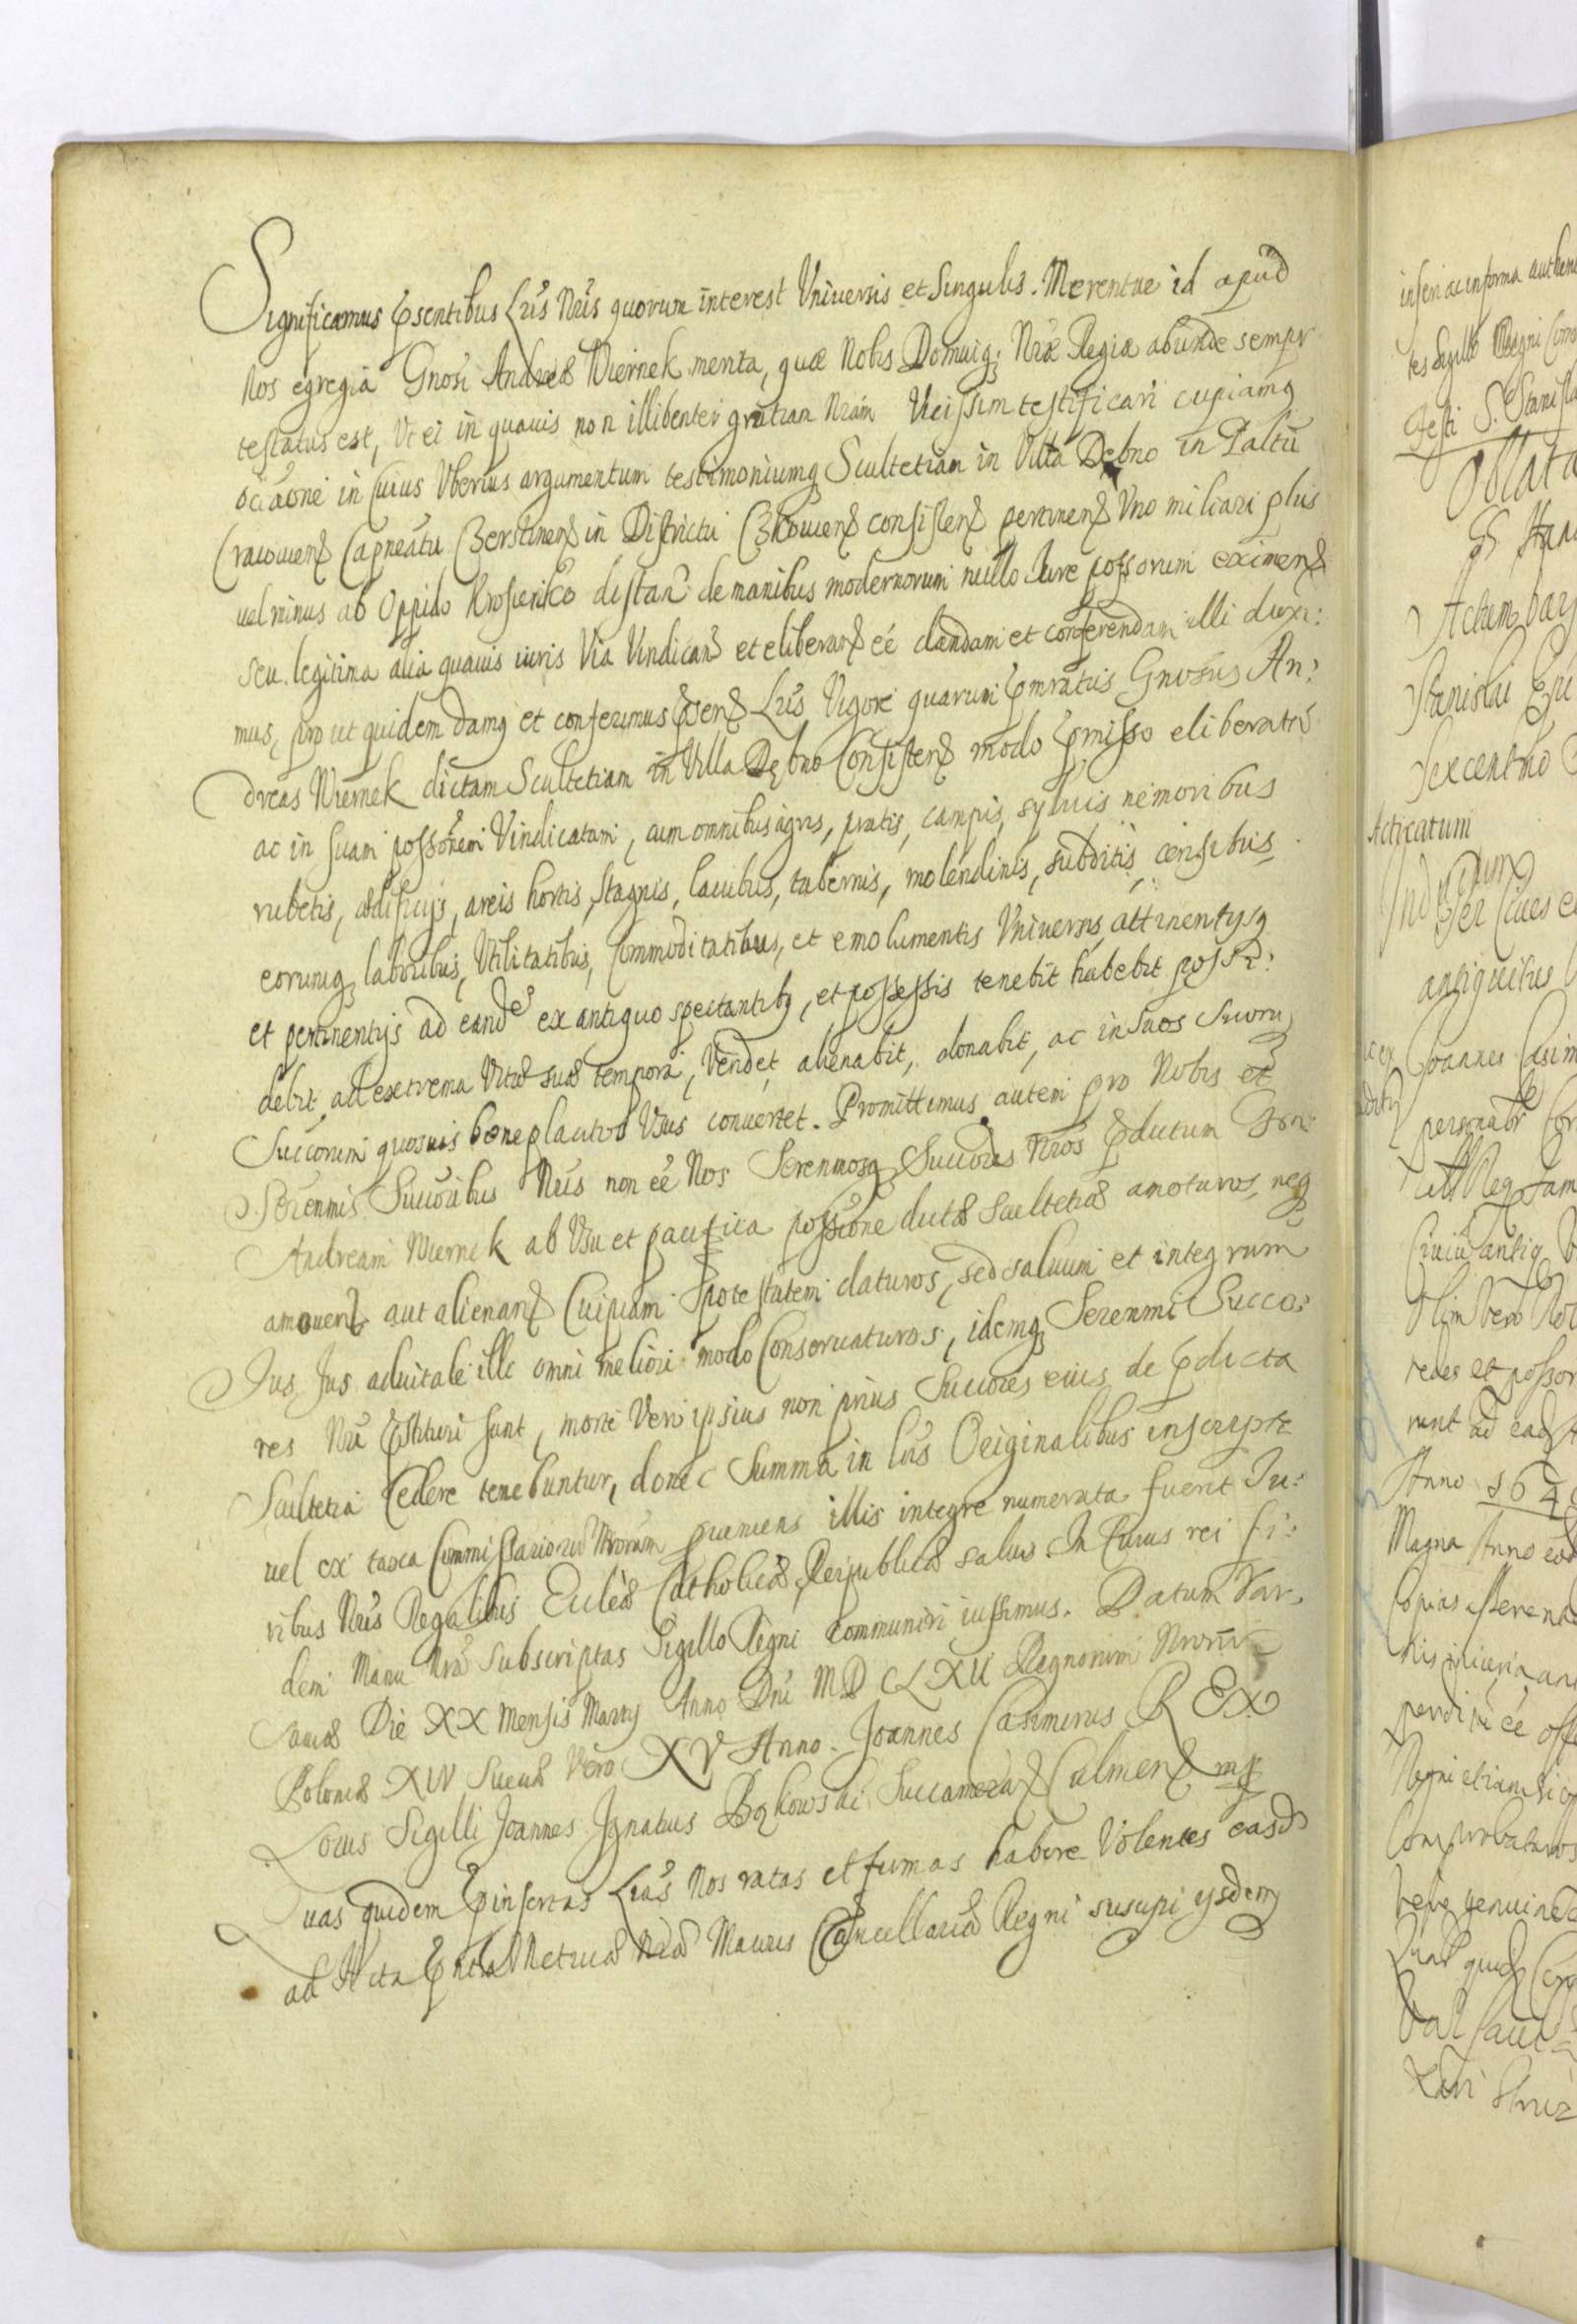 Significamus p̃sentibus Lrĩs Nrĩs quorum interest Vniuersis et Singulis. Merentur id apud
Nos egregia Gnosi Andreæ Wiernek merita, quæ Nobis Domuiq; Nræ Regiæ abunde semper
testatus est, Vt ei in quauis non illibenter gratiam Nram Vicissim testificari cupiamq
occaone in Cuius Vberius argumentum testimoniumq Scultetiam in Villa Debno in Paltu
Cracouien Capneatu Czerstinen in Districtu Czkouien consisten pertinen Vno miliari plus
uel minus ab Oppido Krosienko distan de manibus modernorum nullo Jure possorum eximen
seu legitima alia quauis iuris Via Vindican et eliberan eé dandam et conferendam illi duxi:
mus, prout quidem damq et conferimus p̃sen Lrĩs Vigore quarum p̃mratus Gnosus An:
dreas Wiernek dictam Scultetiam in Villa Dębno Consisten modo p̃misso eliberatã
ac in suam possonem Vindicatam, cum omnibus agris, pratis, campis, syluis nemoribus
rubetis, ædificijs, areis hortis, stagnis, lacubus, tabernis, molendinis, subditis, censibus,
eorumq; laboribus, Vtilitatibus, Commoditatibus, et emolumentis Vniuersis, attinentijsq
et pertinentijs ad eandẽ ex antiquo spectantibq, et possessis tenebit habebit possi:
debit, ad extrema Vitæ suæ tempora, Vendet, alienabit, donabit, ac in Suos Suoru
Succorum quosuis beneplacitos Vsus conuertet. Promittimus autem pro Nobis et
Serenmis Succoribus Nrĩs non eé Nos Serenmosq Succores Nros p̃dictum Gen:
Andream Wiernek ab Vsu et pacifica possione dictæ Scultetiæ amoturos, neq
amouen aut alienan Cuipiam potestatem daturos, sed saluum et integrum
Jus, Jus aduitale illi omni meliori modo Conseruaturos, idemq Serenmi Succo:
res Nri p̃stituri sunt, morte Vero ipsius non prius Succores eius de p̃dicta
Scultetia Cedere tenebuntur, donec Summa in lrĩs Originalibus inscripta
uel ex taxa Commissariorũ Nrorum proueniens illis integre numerata fuerit Ju:
ribus Nrĩs Regalibus Ecclẽæ Catholicæ, Reipublicæ saluis. In Cuius rei fi:
dem Manu Nra Subscriptas Sigillo Regni communiri iussimus. Datum Var,
sauiæ Die XX Mensis Martij Anno Dni MDCLXII Regnorum Nrorũ
Poloniæ XIV Sueciæ Vero XV Anno. Joannes Casimirus REX
Locus Sigilli Joannes Ignatius Bąkowski Succamera Culmen mp
Quas quidem p̃insertas Lrãs Nos ratas et firmas habere Volentes easd
ad Acta p̃ntia Metricæ Nræ Maioris Cancellariæ Regni suscipi ysdem
inseri ac in forma authen
tes Sigillo Regni Com
Festi S. Stanisla
Oblata
Stanislai
Acticatum
Induct
antiquitus
Joannes Casim
Anno 164
Magna Anno eod
Copias